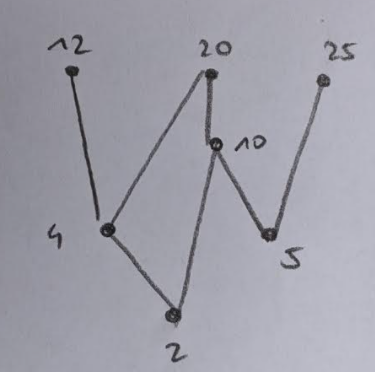 12 20 25
10
4
5
2